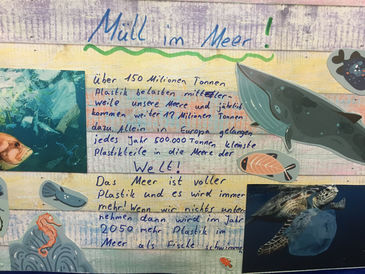 Müll im Meer!
Über 150 Milionen Tonnen
Plastik belasten mittlern-
weile unsere Meere und jährlich
kommen weiter 17 Milionen Tonnen
dazu. Allein in Europa gelangen
jedes Jahr 500.000 Tonnen kleinste
Plastikteile in die Meere der
Welt!
Das Meer ist voller
Plastik und es wird immer
mehr! Wenn wir nichts unter
nehmen dann wird im Jahr
2050 mehr Plastik im
Meer als Fische schwimm